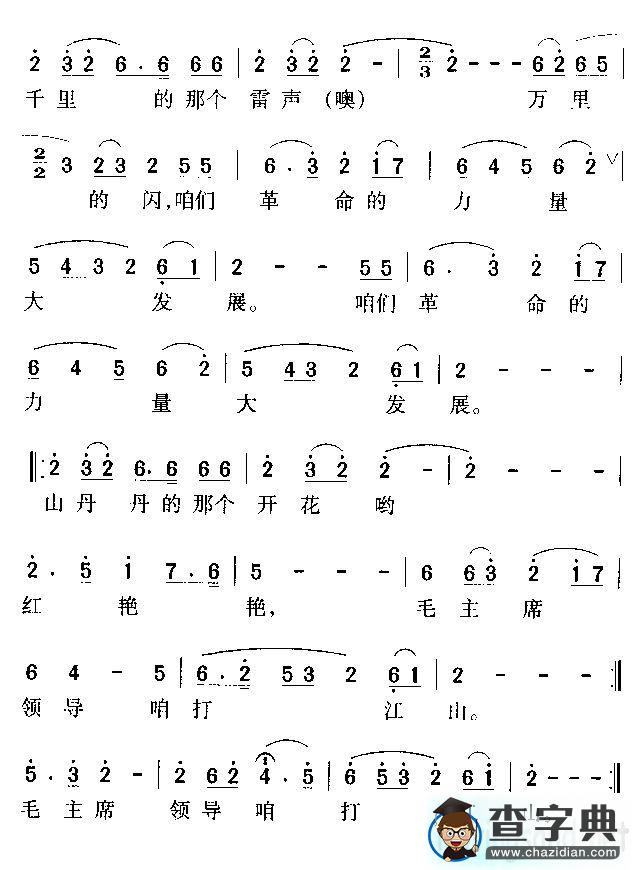 2 3 2 6. 6 6 6 | 2 3 2 2 - | 2/3 2 - - - 6 2 6 5
千里 的那个 雷声(噢) 万里
2/2 3 2 3 2 5 5 | 6. 3 2 1 7 | 6 4 5 6 2 ∨
的 闪,咱们 革 命的 力 量
5 4 3 2 6 1 | 2 - - 5 5 | 6. 3 2 1 7
大 发 展。 咱们 革 命的
6 4 5 6 2 | 5 4 3 2 6 1 | 2 - - - |
力 量 大 发 展。
‖: 2 3 2 6. 6 6 6 | 2 3 2 2 - | 2 - - - |
山丹 丹的那个 开花 哟
2. 5 1 7. 6 | 5 - - - | 6 6 3 2 1 7
红 艳 艳, 毛主席
6 4 - 5 | 6. 2 5 3 2 6 1 | 2 - - - :‖
领导 咱打 江山。
5. 3 2 - | 2 6 2 4. 5 | 6 5 3 2 6 1 | 2 - - - :‖
毛主席 领导 咱 打
查字典
www.chazidian.com